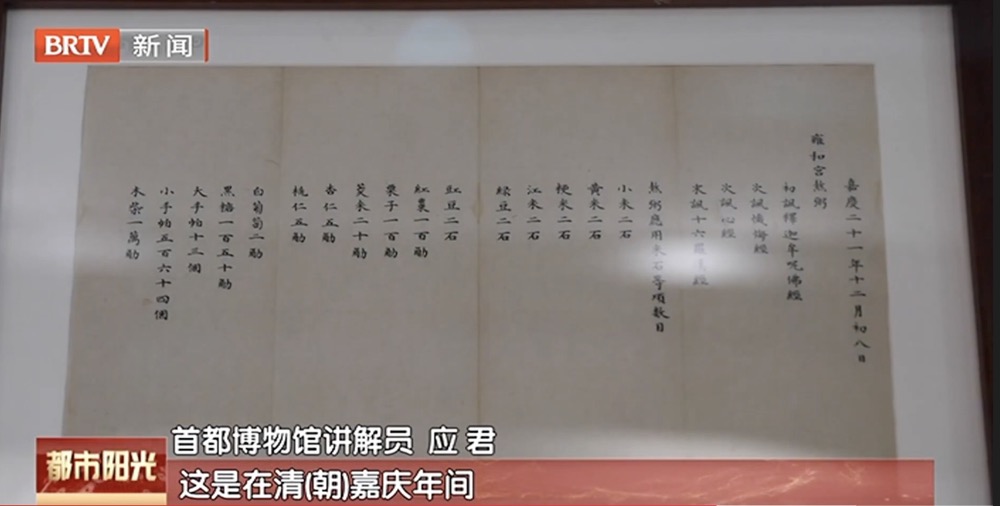 BRTV 新闻
嘉慶二十一年十二月初八日
雍和宮熬粥
初誦釋迦牟呢佛經
次誦懺悔經
次誦心經
末誦十六羅漢經
熬粥應用米石等項數目
小米二石
黃米二石
粳米二石
江米二石
綠豆二石
豇豆二石
紅棗一百觔
栗子一百觔
菱米二十觔
杏仁五觔
桃仁五觔
白葡萄二觔
黑糖一百五十觔
大手帕十三個
小手帕五百六十四個
木柴一萬觔
首都博物馆讲解员 应君
都市阳光
这是在清(朝)嘉庆年间